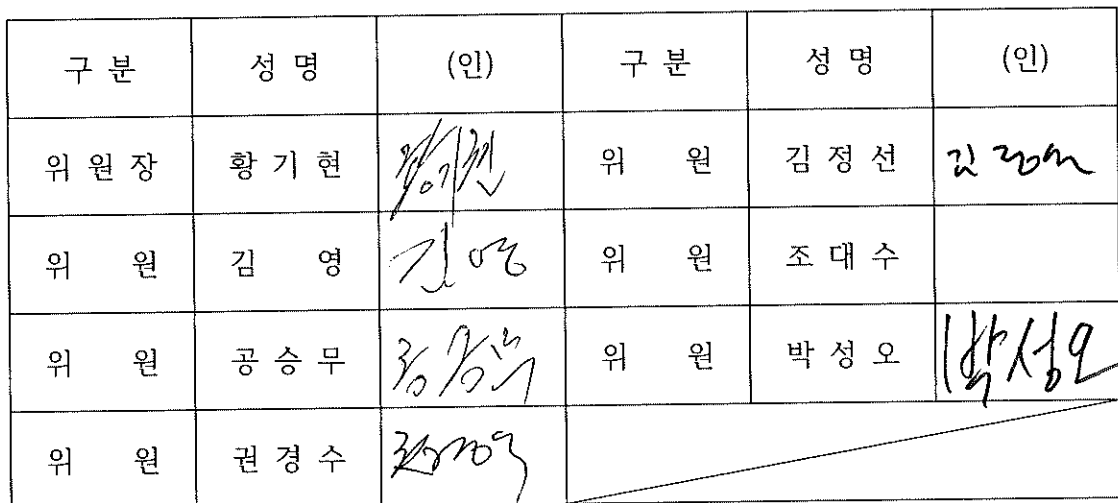 구 분 성 명 (인) 구 분 성 명 (인)
위 원 장 황 기 현 황기현 위 원 김 정 선 김정선
위 원 김 영 김영 위 원 조 대 수
위 원 공 승 무 공승무 위 원 박 성 오 박성오
위 원 권 경 수 권경수